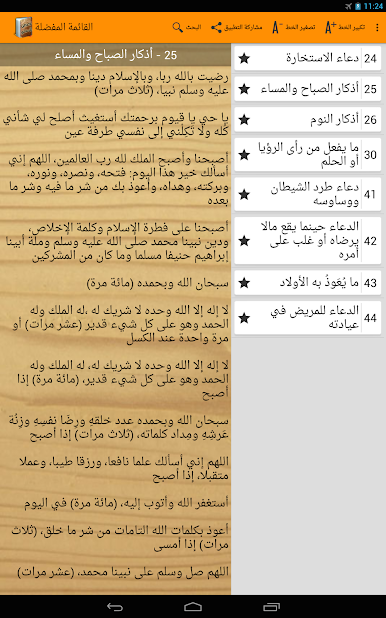 11:24
القائمة المفضلة
البحث
مشاركة التطبيق
تصغير الخط
A-
تكبير الخط
A+
25 - أذكار الصباح والمساء
رضيت بالله ربا، وبالإسلام دينا وبمحمد صلى الله
عليه وسلم نبيا، (ثلاث مرات)
يا حي يا قيوم برحمتك أستغيث أصلح لي شأني
كله ولا تكلني إلى نفسي طرفة عين
أصبحنا وأصبح الملك لله رب العالمين، اللهم إني
أسألك خير هذا اليوم: فتحه، ونصره، ونوره،
وبركته، وهداه، وأعوذ بك من شر ما فيه وشر ما
بعده
أصبحنا على فطرة الإسلام وكلمة الإخلاص،
ودين نبينا محمد صلى الله عليه وسلم وملة أبينا
إبراهيم حنيفا مسلما وما كان من المشركين
سبحان الله وبحمده (مائة مرة)
لا إله إلا الله وحده لا شريك له ،له الملك وله
الحمد وهو على كل شيء قدير (عشر مرات) أو
مرة واحدة عند الكسل
لا إله إلا الله وحده لا شريك له، له الملك وله
الحمد وهو على كل شيء قدير، (مائة مرة) إذا
أصبح
سبحان الله وبحمده عدد خلقه ورضا نفسه وزنة
عرشه ومداد كلماته، (ثلاث مرات) إذا أصبح
اللهم إني أسألك علما نافعا، ورزقا طيبا، وعملا
متقبلا، إذا أصبح
أستغفر الله وأتوب إليه، (مائة مرة) في اليوم
أعوذ بكلمات الله التامات من شر ما خلق، (ثلاث
مرات) إذا أمسى
اللهم صل وسلم على نبينا محمد، (عشر مرات)
24 دعاء الاستخارة
25 أذكار الصباح والمساء
26 أذكار النوم
30 ما يفعل من رأى الرؤيا
أو الحلم
41 دعاء طرد الشيطان
ووساوسه
42 الدعاء حينما يقع مالا
يرضاه أو غلب على
أمره
43 ما يُعَوذُ به الأولاد
44 الدعاء للمريض في
عيادته